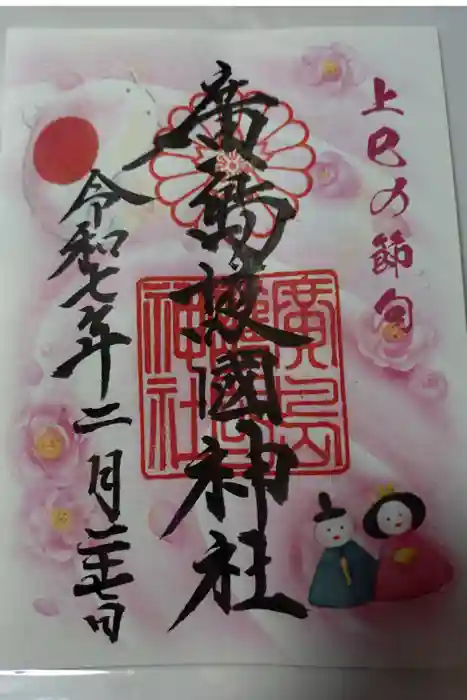 上巳の節句
廣島護國神社
廣島護國神社
令和七年二月二十七日